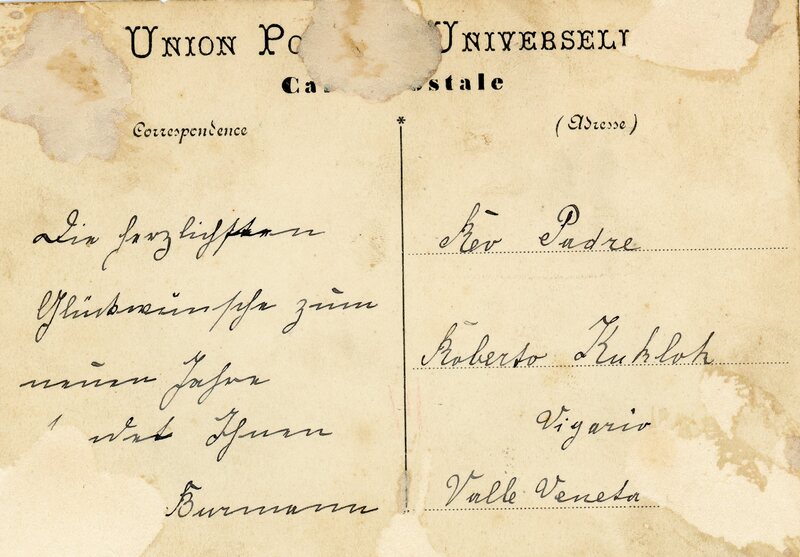 UNION PO UNIVERSELL
Ca stale
Correspondence
(Adresse)
Die herzlichsten
Glückwünsche zum
neuen Jahre
det Ihnen
Burmann
Rev Padre
Roberto Kuklok
Vigario
Valle Veneta